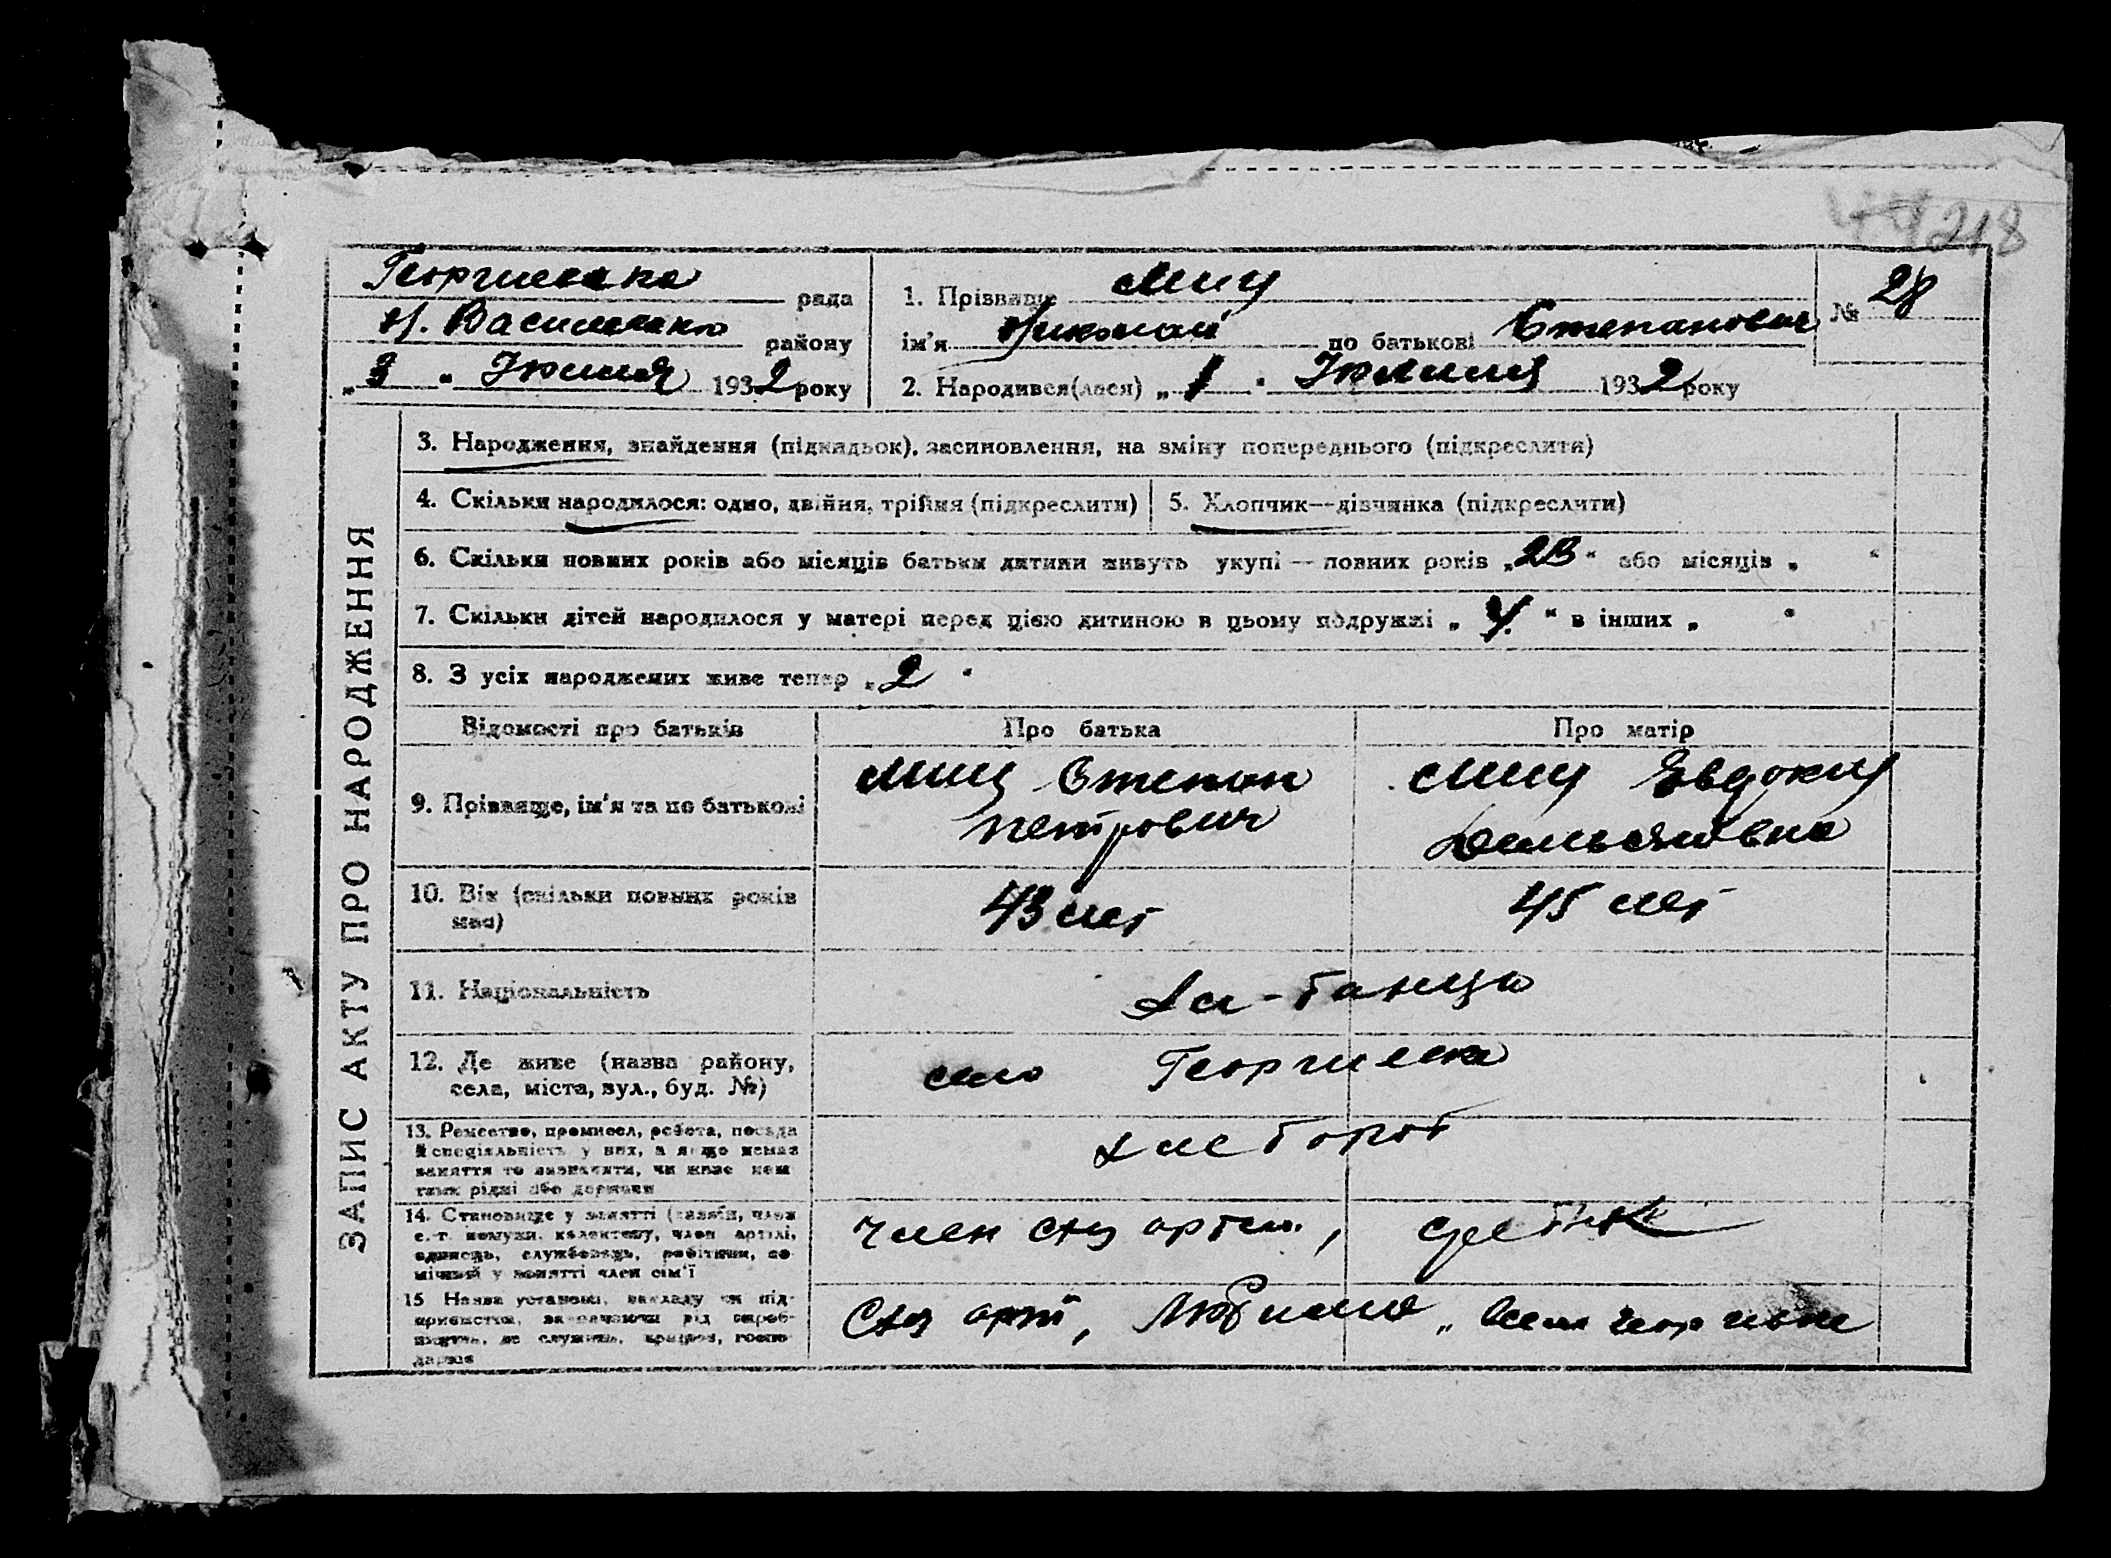 218
Георгиевка рада
Н. Василевка району
„3“ Июля 1932 року
1. Прізвище Мищ
ім'я Николай по батькові Степанович
№ 28
2. Народився(лася) „1“ Июля 1932 року
ЗАПИС АКТУ ПРО НАРОДЖЕННЯ
3. Народження, знайдення (підкидьок), засиновлення, на зміну попереднього (підкреслити)
4. Скільки народилося: одно, двійня, трійня (підкреслити)
5. Хлопчик—дівчинка (підкреслити)
6. Скільки повних років або місяців батьки дитини живуть укупі — повних років „23“ або місяців „ “
7. Скільки дітей народилося у матері перед цією дитиною в цьому подружжі „4“ в інших „ “
8. З усіх народжених живе тепер „2“
Відомості про батьків Про батька Про матір
9. Прізвище, ім'я та по батькові
Мищ Степан
Петрович
Мищ Евдокия
Демьяновна
10. Вік (скільки повних років
має)
43 лет
45 лет
11. Національність
12. Де живе (назва району,
села, міста, вул., буд. №)
село Георгиевка
13. Ремество, промисел, робота, посада
й спеціяльність у них, а якщо немає
заняття то зазначити, чи живе кош
том рідні або держави
хлебороб
14. Становище у занятті (хазяїн, член
с.-г. комуни, колективу, член артілі,
одинець, службовець, робітник, по-
мічний у занятті член сім'ї
член схз артели,
15 Назва установи, закладу чи під-
приємства,
Схз арт,